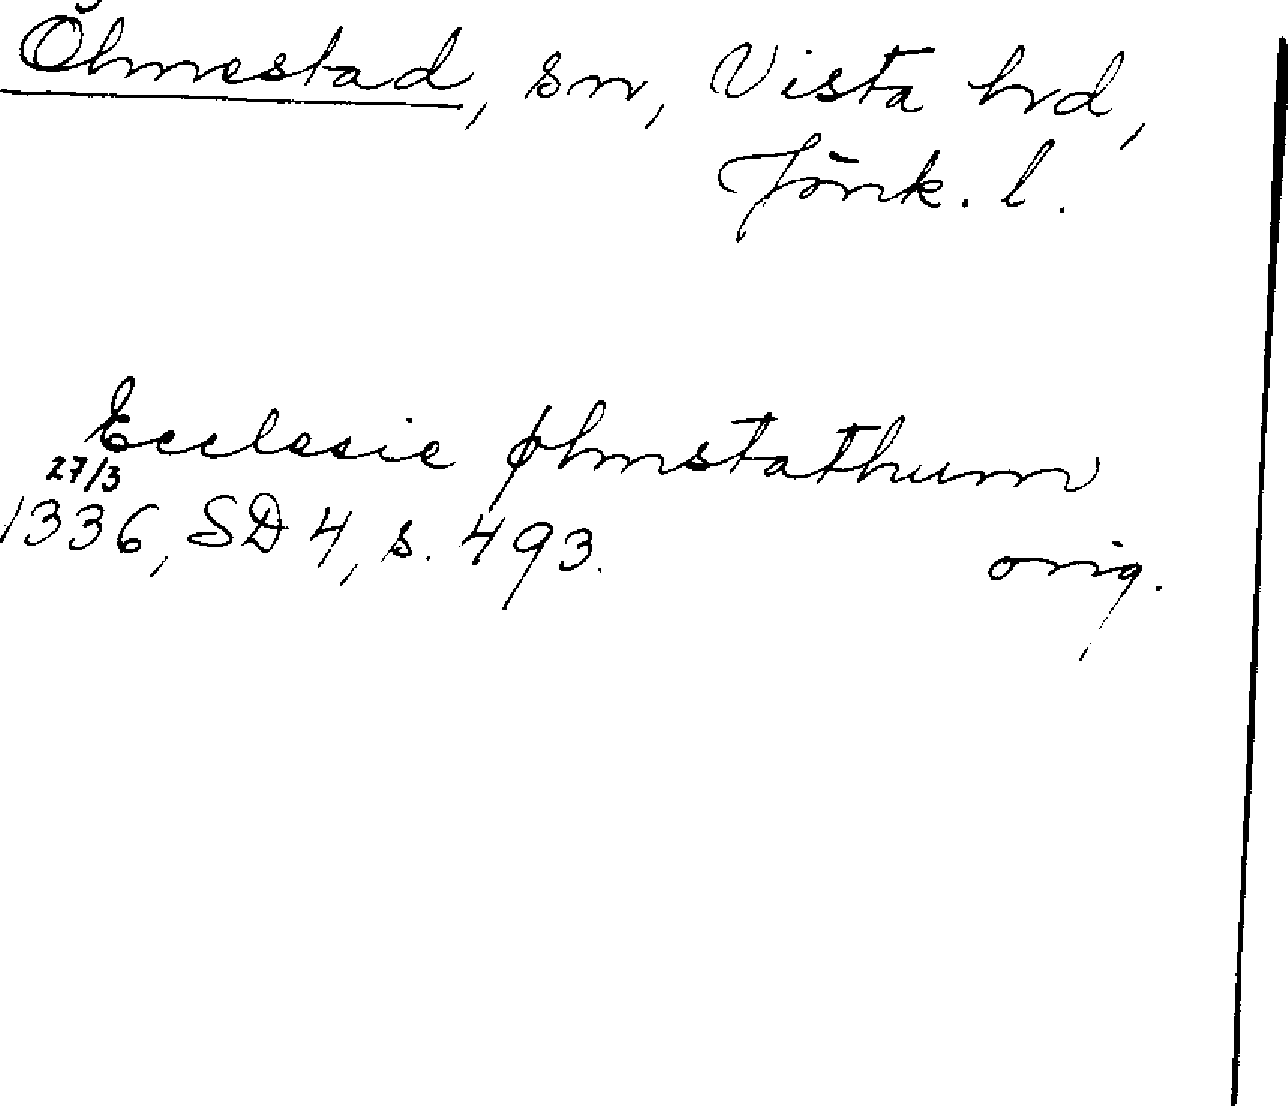 Ölmestad, sn, Vista hrd,
Jönk. l.
Ecclesie ølmstathum
27/3
1336, SD 4, s. 493. orig.